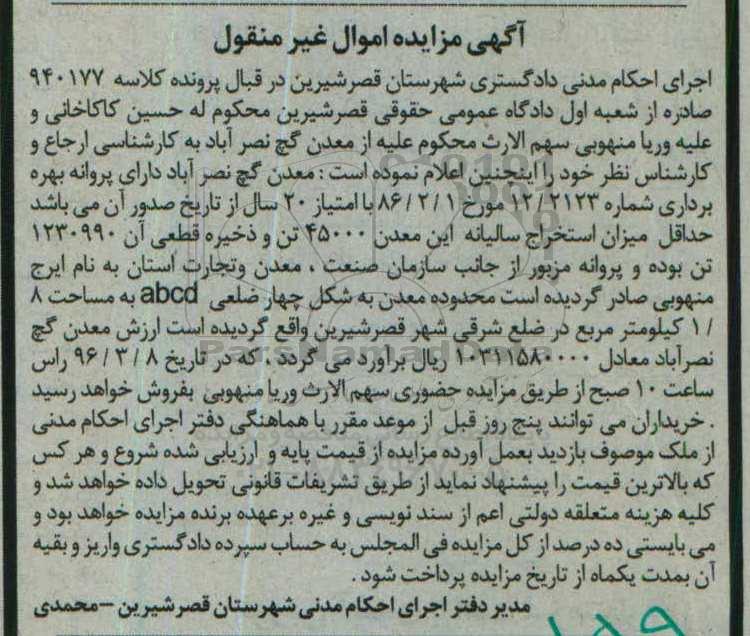 آگهی مزایده اموال غیر منقول
اجرای احکام مدنی دادگستری شهرستان قصرشیرین در قبال پرونده کلاسه ۹۴۰۱۷۷
صادره از شعبه اول دادگاه عمومی حقوقی قصرشیرین محکوم له حسین کاکاخانی و
علیه وریا منهوبی سهم الارث محکوم علیه از معدن گچ نصر آباد به کارشناسی ارجاع و
کارشناس نظر خود را اینچنین اعلام نموده است : معدن گچ نصر آباد دارای پروانه بهره
برداری شماره ۱۲/۲۱۲۳ مورخ ۸۶/۲/۱ با امتیاز ۲۰ سال از تاریخ صدور آن می باشد
حداقل میزان استخراج سالیانه این معدن ۴۵۰۰۰ تن و ذخیره قطعی آن ۱۲۳۰۹۹۰
تن بوده و پروانه مزبور از جانب سازمان صنعت ، معدن وتجارت استان به نام ایرج
منهوبی صادر گردیده است محدوده معدن به شکل چهار ضلعی abcd به مساحت ۸
/۱ کیلومتر مربع در ضلع شرقی شهر قصرشیرین واقع گردیده است ارزش معدن گچ
نصرآباد معادل ۱۰۳۱۱۵۸۰۰۰۰ ریال برآورد می گردد ، که در تاریخ ۹۶/۳/۸ راس
ساعت ۱۰ صبح از طریق مزایده حضوری سهم الارث وریا منهوبی بفروش خواهد رسید
. خریداران می توانند پنج روز قبل از موعد مقرر با هماهنگی دفتر اجرای احکام مدنی
از ملک موصوف بازدید بعمل آورده مزایده از قیمت پایه و ارزیابی شده شروع و هر کس
که بالاترین قیمت را پیشنهاد نماید از طریق تشریفات قانونی تحویل داده خواهد شد و
کلیه هزینه متعلقه دولتی اعم از سند نویسی و غیره برعهده برنده مزایده خواهد بود و
می بایستی ده درصد از کل مزایده فی المجلس به حساب سپرده دادگستری واریز و بقیه
آن بمدت یکماه از تاریخ مزایده پرداخت شود .
مدیر دفتر اجرای احکام مدنی شهرستان قصرشیرین – محمدی